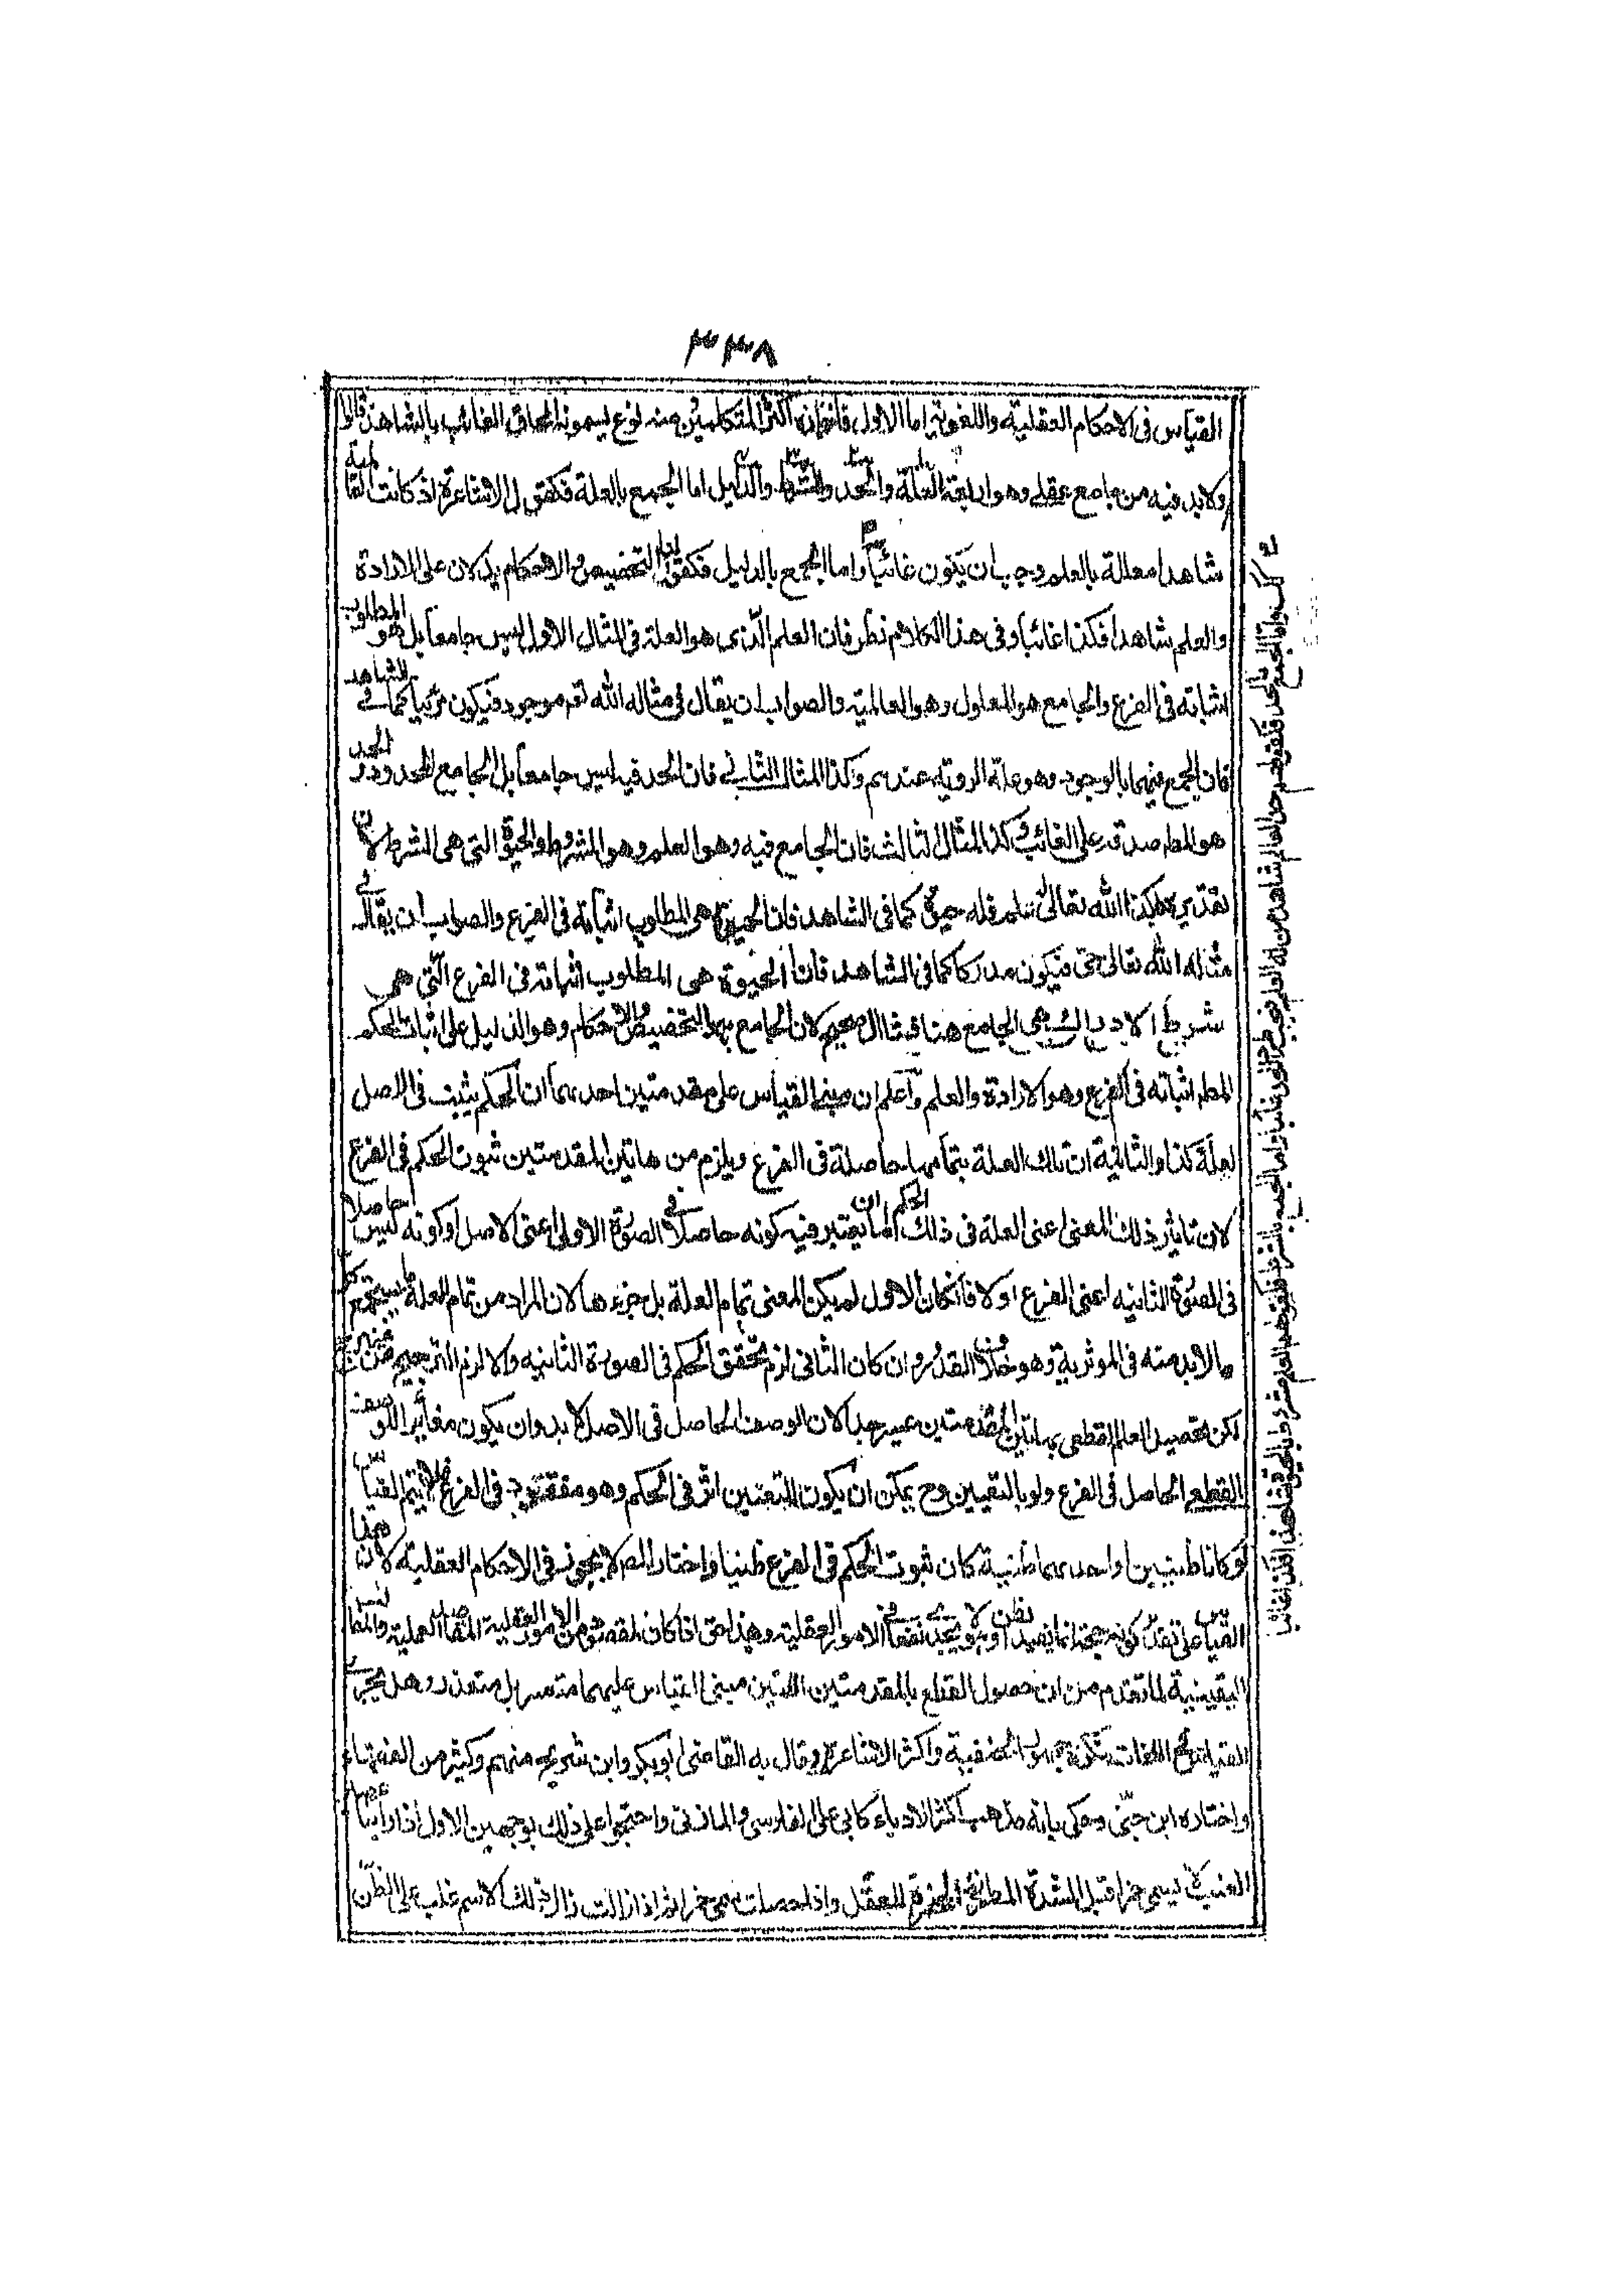 ٣٣٨
القياس فى الاحكام العقلية واللغوية اما الاول فانه اكثر المتكلمين منه نوع يسمونه الحاق الغائب بالشاهد قالوا
ولابد فيه من جامع عقلى وهو اربعة العلة والحد والشرط والدليل اما الجمع بالعلة فكقول الاشاعرة اذ كانت العالمية
شاهدا معللة بالعلم وجب ان يكون غائبا واما الجمع بالدليل فكقولنا التخصيص والاحكام يدلان على الارادة
والعلم شاهدا فكذا غائبا وفى هذا الكلام نظر فان العلم الذى هو العلة فى المثال الاول ليس جامعا بل هو المطلوب
اثباته فى الفرع والجامع هو المعلول وهو العالمية والصواب ان يقال فى مثاله الله تعم موجود فيكون مرئيا كما فى الشاهد
فان الجمع بينهما بالوجود وهو علة الروية عندهم وكذا المثال الثانى فان الحد فيه ليس جامعا بل الجامع المحدود والحد
هو المط صدقه على الغائب وكذا المثال الثالث فان الجامع فيه وهو العلم وهو المشروط والحيوة التى هى الشرط لان
تقديره هكذا الله تعالى علم فله حيوة كما فى الشاهد فان الحيوة هى المطلوب اثباته فى الفرع والصواب ان يقال فى
مثاله الله تعالى حى فيكون مدركا كما فى الشاهد فان الحيوة هى المطلوب اثباته فى الفرع التى هى
شرط الادراك هى الجامع هنا صحيح لان الجامع التخصيص والاحكام وهو الدليل على اثبات الحكم
المط اثباته فى الفرع وهو الارادة والعلم واعلم ان مبنى القياس على مقدمتين احدىهما ان الحكم يثبت فى الاصل
لعلة كذا والثانية ان تلك العلة بتمامها حاصلة فى الفرع ويلزم من هاتين المقدمتين ثبوت الحكم فى الفرع
لان تاثير ذلك المعنى اعنى العلة فى ذلك الحكم اما ان يعتبر فيه كونه حاصلا فى الصورة الاولى اعنى الاصل او كونه ليس حاصلا
فى الصورة الثانيه اعنى الفرع او لا فان كان الاول لم يكن المعنى تمام العلة بل جزءها لان المراد من تمام العلة المستجمع كل
ما لابد منه فى الموثرية وهو خلاف المقدر وان كان الثانى لزم تحقق الحكم فى الصورة الثانيه والا لزم الترجيح من غير مرجح
لكن تحصيل العلم القطعى بهاتين المقدمتين عسير جدا لان الوصف الحاصل فى الاصل لابد وان يكون مغايرا للوصف
القطعى الحاصل فى الفرع ولو بالتعيين وح يمكن ان يكون للتعين اثر فى الحكم وهو مفقود فى الفرع فلا يتم القياس
لو كانا ظنيين او احدىهما ظنية كان ثبوت الحكم فى الفرع ظنيا واختار المص لا يجوز فى الاحكام العقلية لان هذا
القياس على تقدير كونه حجة انما يفيد الظن وهو لا يجدى نفعا فى الامور العقلية وهذا حق اذا كان المقصود من الامور العقلية
اليقينية لما تقدم من ان حصول القطع بالمقدمتين اللتين مبنى القياس عليهما متعسر بل متعذر وهل يجرى
القياس فى اللغات جمهور الحنفية واكثر الاشاعرة وقال به القاضى ابوبكر وابن شريح منهم وكثير من الفقهاء
واختاره ابن جنى وحكى بانه مذهب اكثر الادباء كابى على الفارسى والمازنى واحتجوا على ذلك بوجهين الاول اذا راينا عصير
العنب لا يسمى خمرا قبل الشدة المطربة المخمرة للعقل واذا حصلت سمى خمرا ثم اذا زالت زال ذلك الاسم غلب على الظن
واما الجمع بالحد فكقولهم حد العالم شاهدا من له العلم فيجب طرد الحد غائبا واما الجمع بالشرط فكقولهم العلم مشروط بالحيوة شاهدا فكذا غائبا